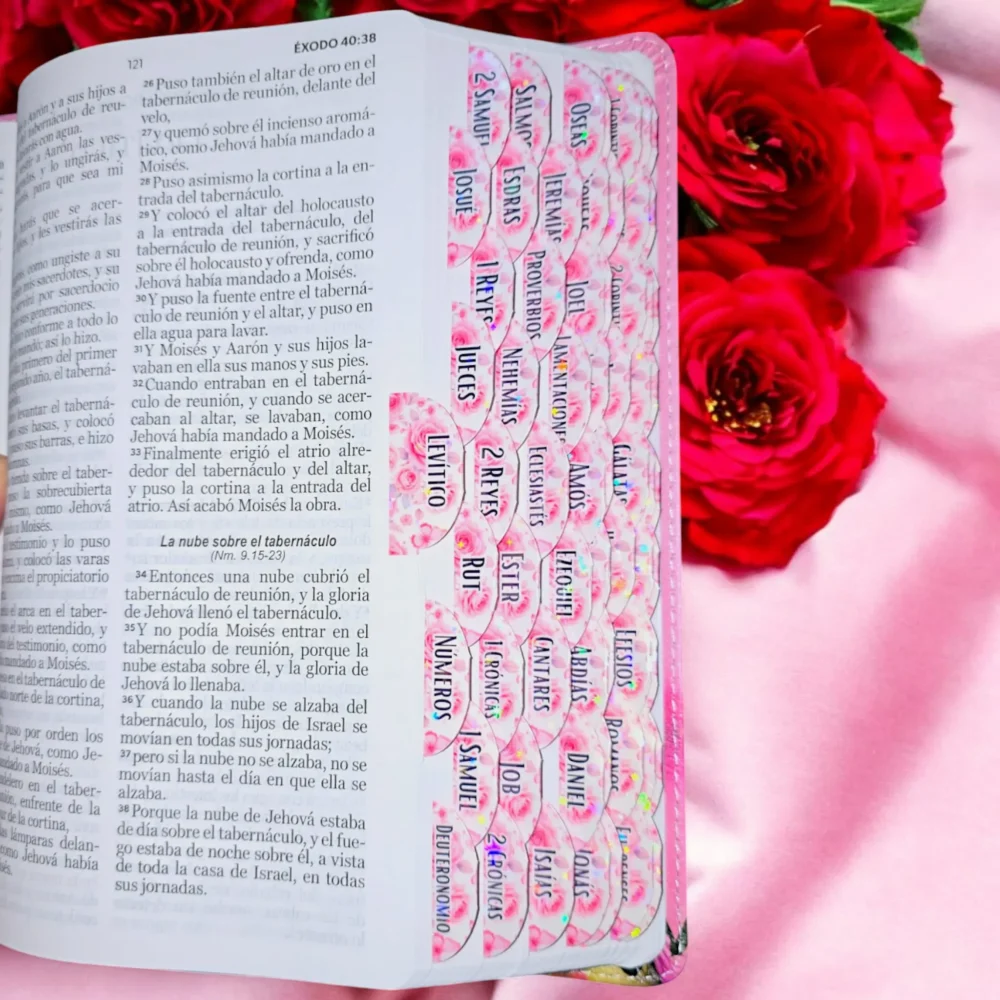 121
ÉXODO 40:38
Aarón y a sus hijos a
tabernáculo de reu-
con agua.
a Aarón las ves-
y lo ungirás, y
para que sea mi
que se acer-
y les vestirás las
como ungiste a su
sacerdotes, y su
por sacerdocio
sus generaciones.
conforme a todo lo
así lo hizo.
primero del primer
año, el taberná-
levantar el taberná-
sus basas, y colocó
puso sus barras, e hizo
sobre el taber-
la sobrecubierta
como Jehová
a Moisés.
testimonio y lo puso
y colocó las varas
encima el propiciatorio
el arca en el taber-
el velo extendido, y
del testimonio, como
mandado a Moisés.
en el tabernáculo de
norte de la cortina,
puso por orden los
de Jehová, como Je-
mandado a Moisés.
en el taber-
enfrente de la
de la cortina,
lámparas delan-
como Jehová había
26 Puso también el altar de oro en el
tabernáculo de reunión, delante del
velo,
27 y quemó sobre él incienso aromá-
tico, como Jehová había mandado a
Moisés.
28 Puso asimismo la cortina a la en-
trada del tabernáculo.
29 Y colocó el altar del holocausto
a la entrada del tabernáculo, del
tabernáculo de reunión, y sacrificó
sobre él holocausto y ofrenda, como
Jehová había mandado a Moisés.
30 Y puso la fuente entre el taberná-
culo de reunión y el altar, y puso en
ella agua para lavar.
31 Y Moisés y Aarón y sus hijos la-
vaban en ella sus manos y sus pies.
32 Cuando entraban en el taberná-
culo de reunión, y cuando se acer-
caban al altar, se lavaban, como
Jehová había mandado a Moisés.
33 Finalmente erigió el atrio alre-
dedor del tabernáculo y del altar,
y puso la cortina a la entrada del
atrio. Así acabó Moisés la obra.
La nube sobre el tabernáculo
(Nm. 9.15-23)
34 Entonces una nube cubrió el
tabernáculo de reunión, y la gloria
de Jehová llenó el tabernáculo.
35 Y no podía Moisés entrar en el
tabernáculo de reunión, porque la
nube estaba sobre él, y la gloria de
Jehová lo llenaba.
36 Y cuando la nube se alzaba del
tabernáculo, los hijos de Israel se
movían en todas sus jornadas;
37 pero si la nube no se alzaba, no se
movían hasta el día en que ella se
alzaba.
38 Porque la nube de Jehová estaba
de día sobre el tabernáculo, y el fue-
go estaba de noche sobre él, a vista
de toda la casa de Israel, en todas
sus jornadas.
LEVÍTICO
NÚMEROS
DEUTERONOMIO
JOSUÉ
JUECES
RUT
1 SAMUEL
2 SAMUEL
1 REYES
2 REYES
1 CRÓNICAS
2 CRÓNICAS
ESDRAS
NEHEMÍAS
ESTER
JOB
SALMO
PROVERBIOS
ECLESIASTÉS
CANTARES
ISAÍAS
JEREMÍAS
LAMENTACIONES
EZEQUIEL
DANIEL
OSEAS
JOEL
AMÓS
ABDÍAS
JONÁS
GÁLATAS
EFESIOS